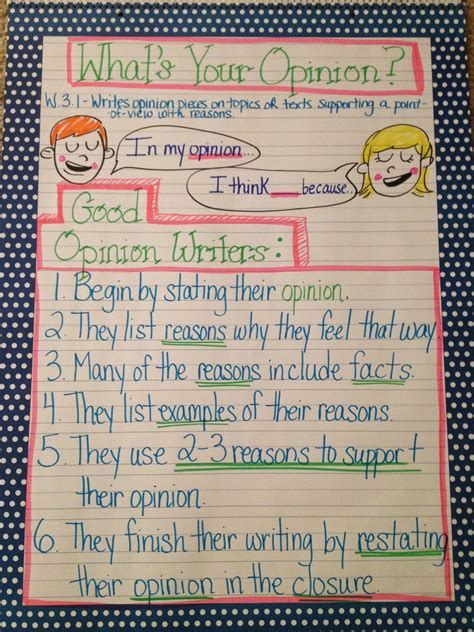 What's Your Opinion?
W.3.1 - Writes opinion pieces on topics or texts supporting a point-
of-view with reasons.
In my opinion...
I think ___ because..
Good
Opinion Writers:
1. Begin by stating their opinion.
2. They list reasons why they feel that way.
3. Many of the reasons include facts.
4. They list examples of their reasons.
5. They use 2-3 reasons to support
their opinion.
6. They finish their writing by restating
their opinion in the closure.